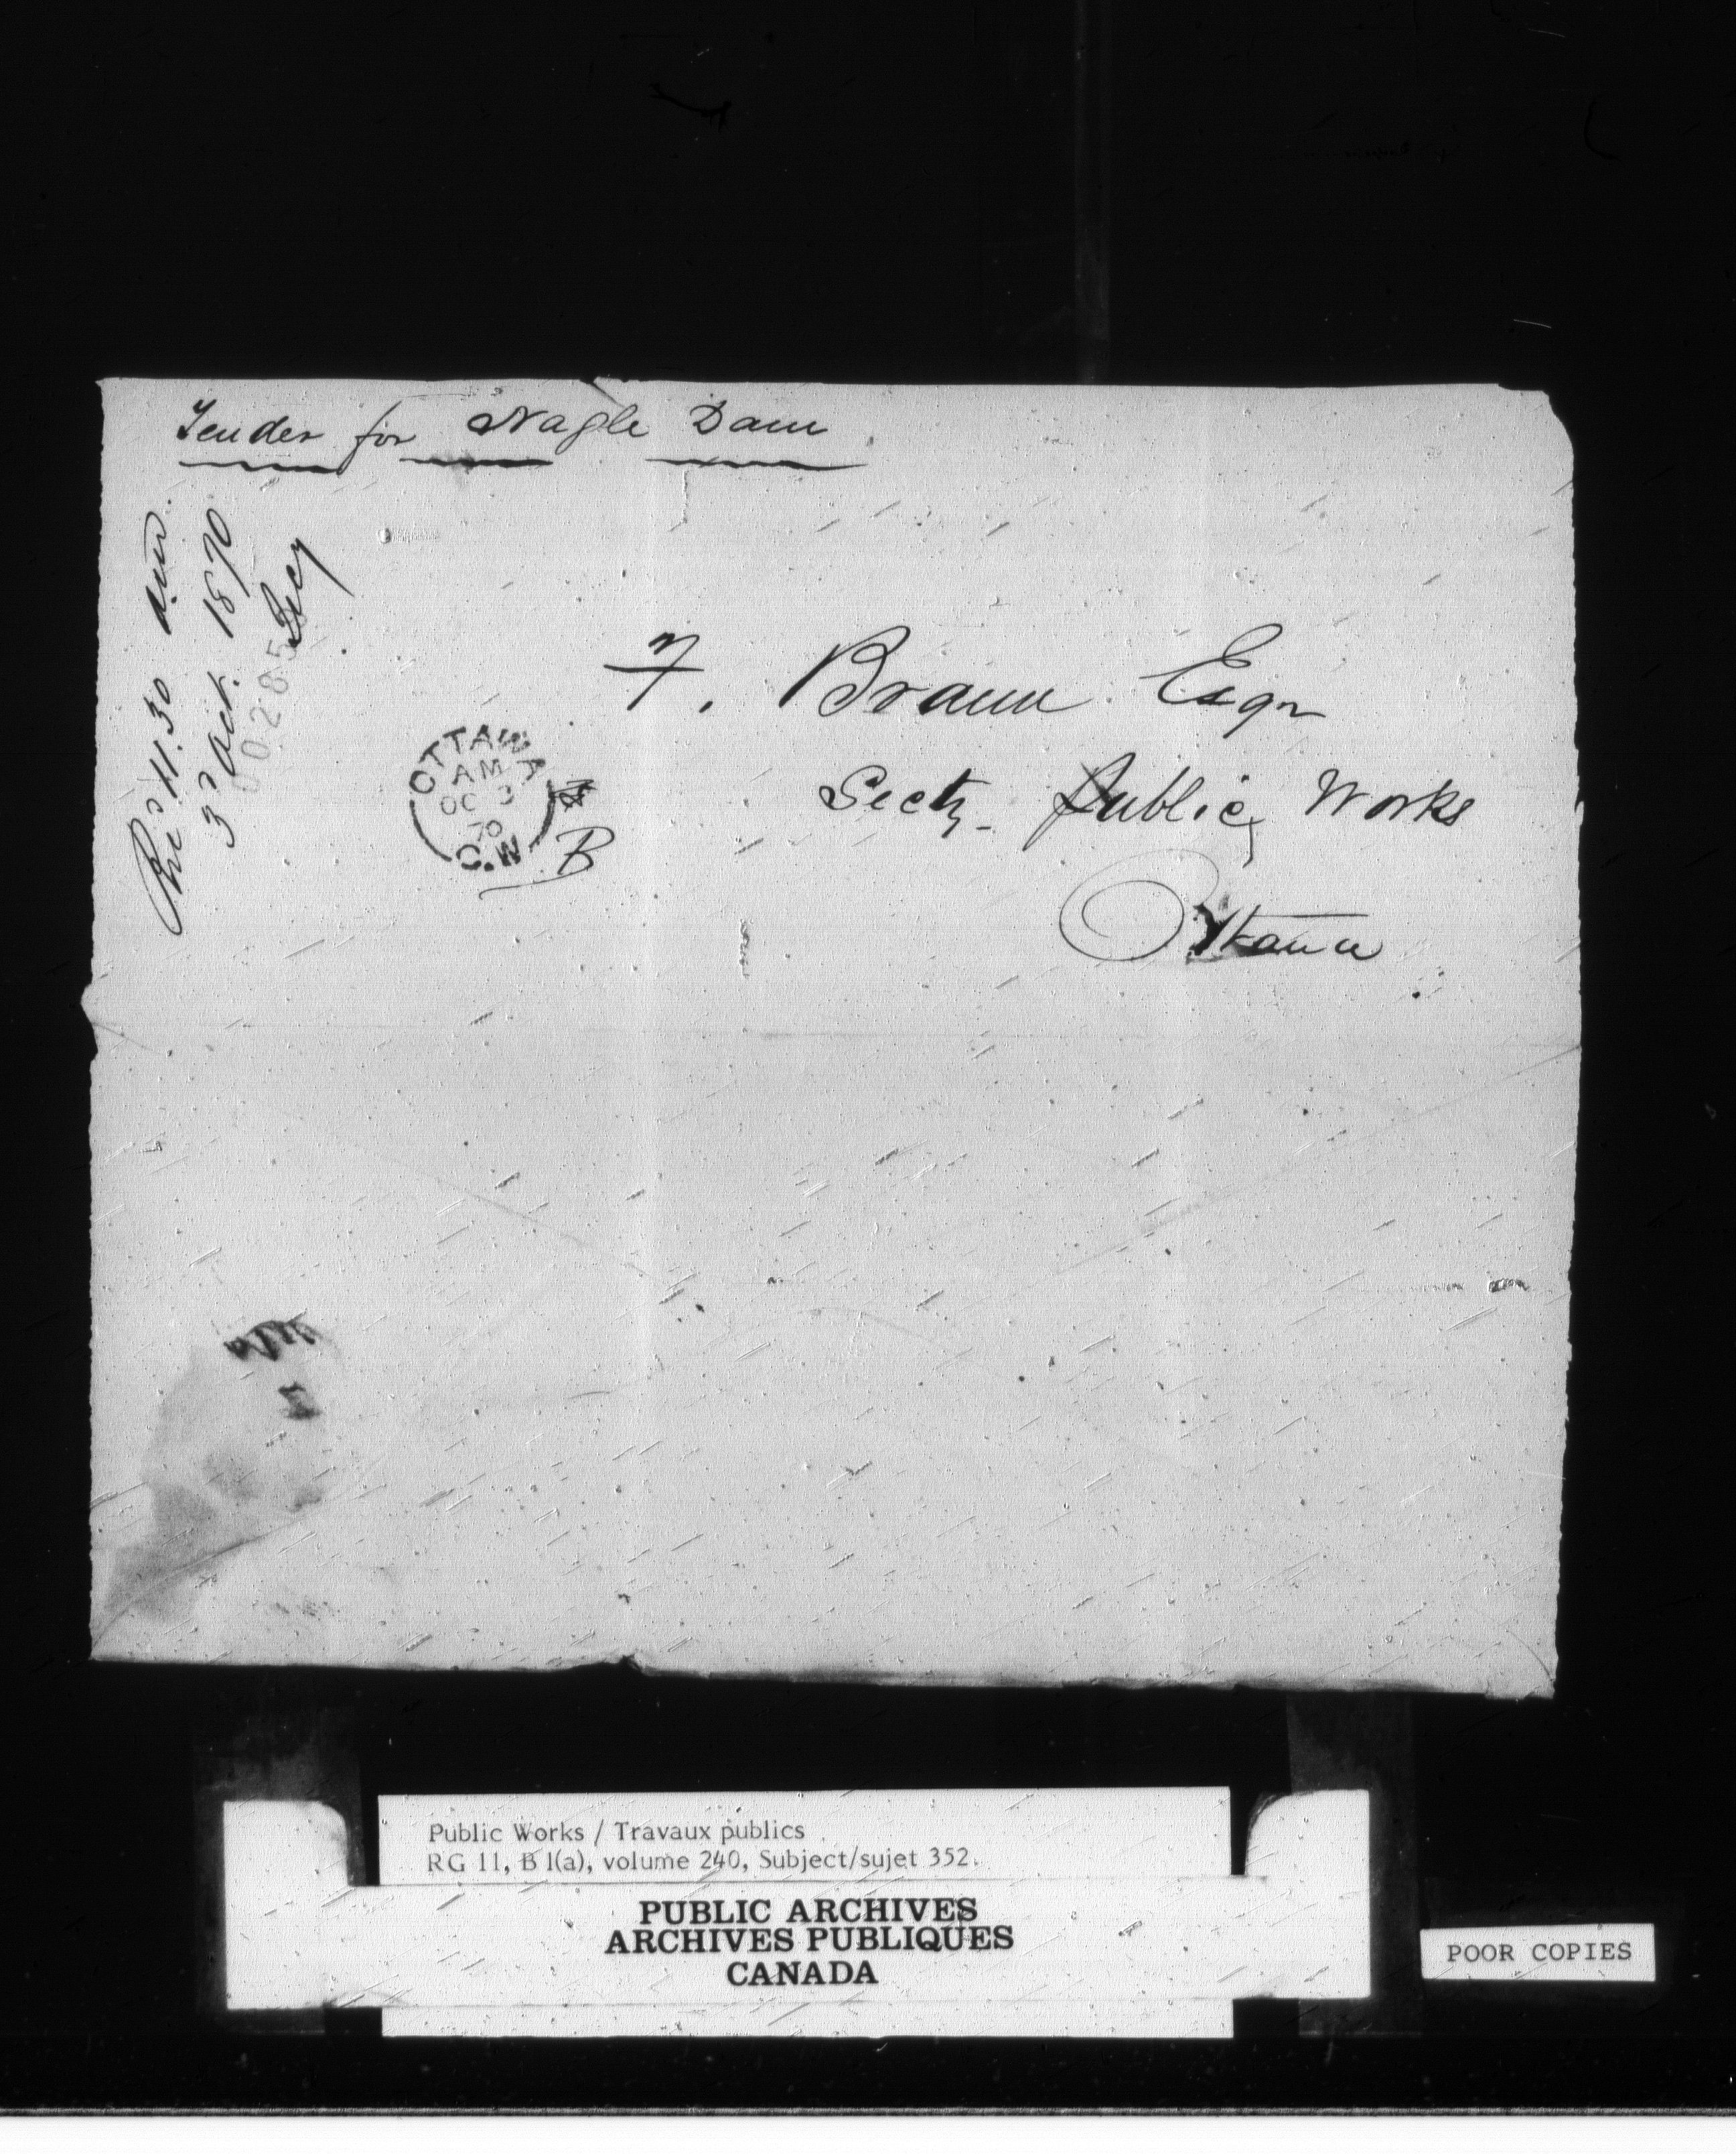 Tender for Nagle Dam
Recd 11.30 a.m.
3d Oct. 1870
Secy
OTTAWA
AM
OC 3
70
C.W
B
F. Braun Esqr
Secty- Public Works
Ottawa
Public Works / Travaux publics
RG 11, B 1(a), volume 240, Subject/sujet 352.
PUBLIC ARCHIVES
ARCHIVES PUBLIQUES
CANADA
POOR COPIES